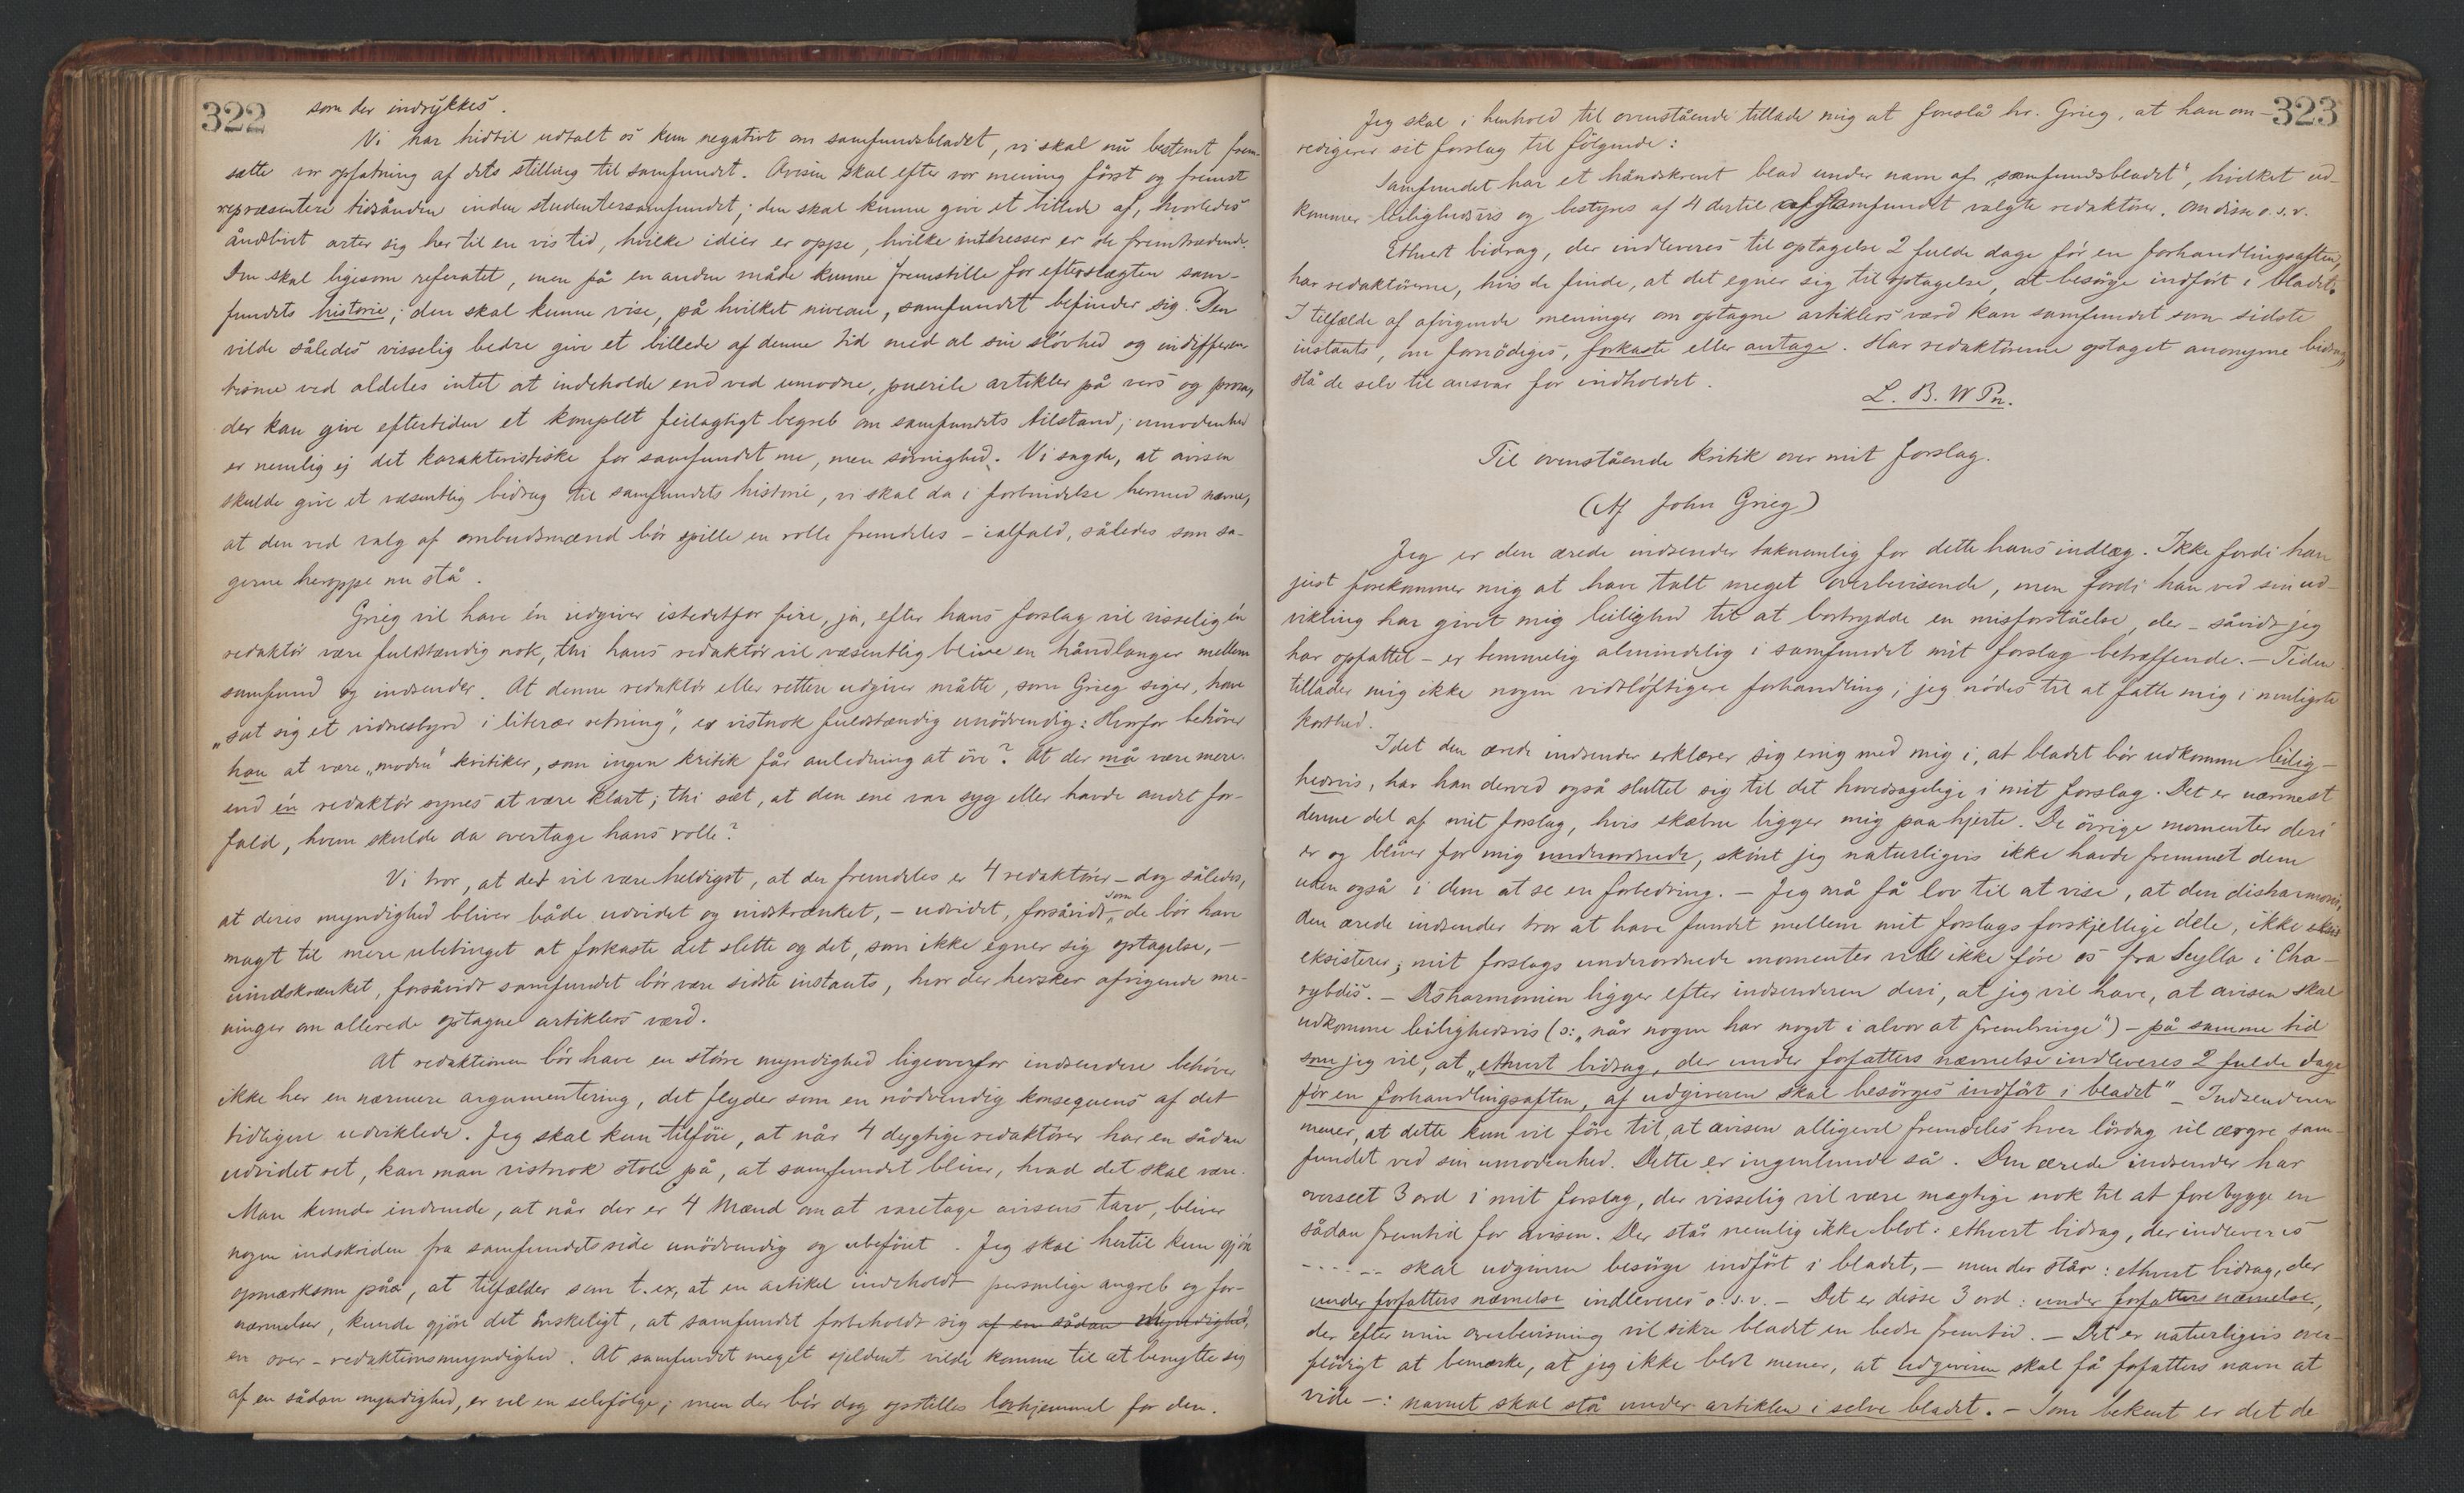 322
som der indrykkes.
Vi har hidtil udtalt os kun negativt om samfundsbladet, vi skal nu bestemt frem-
sætte vor opfatning af dets stilling til samfundet. Avisen skal efter vor mening først og fremst
repræsentere tidsånden inden studentersamfundet; den skal kunne give et billede af, hvorledes
åndslivet arter sig her til en vis tid, hvilke idéer er oppe, hvilke intresser er de fremtrædende.
Den skal ligesom referatet, men på en anden måde kunne fremstille for efterslægten sam-
fundets historie; den skal kunne vise, på hvilket niveau, samfundet befinder sig. Den
vilde således visselig bedre give et billede af denne tid med al sin sløvhed og indifferen-
tisme ved aldeles intet at indeholde end ved umodne, puerile artikler på vers og prosa,
der kan give eftertiden et komplet feilagtigt begreb om samfundets tilstand; umodenhed
er nemlig ej det karakteristiske for samfundet nu, men søvnighed. Vi sagde, at avisen
skulde give et væsentlig bidrag til samfundets historie, vi skal da i forbindelse hermed nævne,
at den ved valg af ombudsmænd bør spille en rolle fremdeles – ialfald, således som sa-
gerne heroppe nu stå.
Grieg vil have én udgiver istedetfor fire, ja, efter hans forslag vil visselig én
redaktør være fuldstændig nok, thi hans redaktør vil væsentlig blive en håndlanger mellem
samfund og indsender. At denne redaktør eller rettere udgiver måtte, som Grieg siger, have
„sat sig et vidnesbyrd i literær retning", er vistnok fuldstændig unødvendig: Hvorfor behøver
han at være „moden" kritiker, som ingen kritik får anledning at øve? At der må være mere
end én redaktør synes at være klart; thi sæt, at den ene var syg eller havde andet for-
fald, hvem skulde da overtage hans rolle?
Vi tror, at det vil være heldigst, at der fremdeles er 4 redaktører – dog således,
at deres myndighed bliver både udvidet og indskrænket, – udvidet, forsåvidt som de bør have
magt til mere ubetinget at forkaste det slette og det, som ikke egner sig optagelse, –
indskrænket, forsåvidt samfundet bør være sidste instants, hvor der hersker afvigende me-
ninger om allerede optagne artiklers værd.
At redaktionen bør have en større myndighed ligeoverfor indsendere behøver
ikke her en nærmere argumentering, det flyder som en nødvendig konsequens af det
tidligere udviklede. Jeg skal kun tilføie, at når 4 dygtige redaktører har en sådan
udvidet ret, kan man vistnok stole på, at samfundet bliver, hvad det skal være.
Man kunde indvende, at når der er 4 Mænd om at varetage avisens tarv, bliver
nogen indskriden fra samfundets side unødvendig og ubeføiet. Jeg skal hertil kun gjøre
opmærksom på, at tilfælder som t. ex, at en artikel indeholdt personlige angreb og for-
nærmelser, kunde gjøre det ønskeligt, at samfundet forbeholdt sig af en sådan myndighed,
en over-redaktionsmyndighed. At samfundet meget sjeldent vilde komme til at benytte sig
af en sådan myndighed, er vel en selvfølge; men der bør dog opstilles lovhjemmel for den.
323
Jeg skal i henhold til ovenstående tillade mig at foreslå hr. Grieg, at han om-
redigerer sit forslag til følgende:
Samfundet har et håndskrevet blad under navn af „samfundsbladet", hvilket ud-
kommer leilighedsvis og bestyres af 4 dertil af samfundet valgte redaktører. Om disse o.s.v.
Ethvert bidrag, der indleveres til optagelse 2 fulde dage før en forhandlingsaften,
har redaktørerne, hvis de finde, at det egner sig til optagelse, at besørge indført i bladet.
I tilfælde af afvigende meninger om optagne artiklers værd kan samfundet som sidste
instants, om fornødiges, forkaste eller antage. Har redaktørerne optaget anonyme bidrag,
stå de selv til ansvar for indholdet.
L. B. W Pn.
Til ovenstående kritik over mit forslag.
(Af John Grieg)
Jeg er den ærede indsender taknemlig for dette hans indlæg. Ikke fordi han
just forekommer mig at have talt meget overbevisende, men fordi han ved sin ud-
vikling har givet mig leilighed til at bortrydde en misforståelse, der – såvidt jeg
har opfattet – er temmelig almindelig i samfundet mit forslag betræffende. – Tiden
tillader mig ikke nogen vidtløftigere forhandling; jeg nødes til at fatte mig i muligste
korthed.
Idet den ærede indsender erklærer sig enig med mig i, at bladet bør udkomme leilig-
hedsvis, har han derved også sluttet sig til det hovedsagelige i mit forslag. Det er nærmest
denne del af mit forslag, hvis skæbne ligger mig paa hjerte. De øvrige momenter deri
er og bliver for mig underordnede, skönt jeg naturligvis ikke havde fremmet dem
uden også i dem at se en forbedring. – Jeg må få lov til at vise, at den disharmoni,
den ærede indsender tror at have fundet mellem mit forslags forskjellige dele, ikke
eksisterer; mit forslags underordnede momenter vil ikke føre os fra Scylla i Cha-
rybdis. – Disharmonien ligger efter indsenderen deri, at jeg vil have, at avisen skal
udkomme leilighedsvis (ɔ: „når nogen har noget i alvor at frembringe") – på samme tid
som jeg vil, at „ethvert bidrag, der under forfatters nævnelse indleveres 2 fulde dage
før en forhandlingsaften, af udgiveren skal besørges indført i bladet" – Indsenderen
mener, at dette kun vil føre til, at avisen alligevel fremdeles hver lørdag vil ærgre sam-
fundet ved sin umodenhed. Dette er ingenlunde så. Den ærede indsender har
overseet 3 ord i mit forslag, der visselig vil være mægtige nok til at forebygge en
sådan fremtid for avisen. Der står nemlig ikke blot: ethvert bidrag, der indleveres
- - - - - skal udgiveren besørge indført i bladet, – men der står: ethvert bidrag, der
under forfatters nævnelse indleveres o.s.v. – Det er disse 3 ord: under forfatters nævnelse,
der efter min overbevisning vil sikre bladet en bedre fremtid. – Det er naturligvis over-
flødigt at bemærke, at jeg ikke blot mener, at udgiveren skal få forfatters navn at
vide –: navnet skal stå under artiklen i selve bladet. – Som bekent er det de